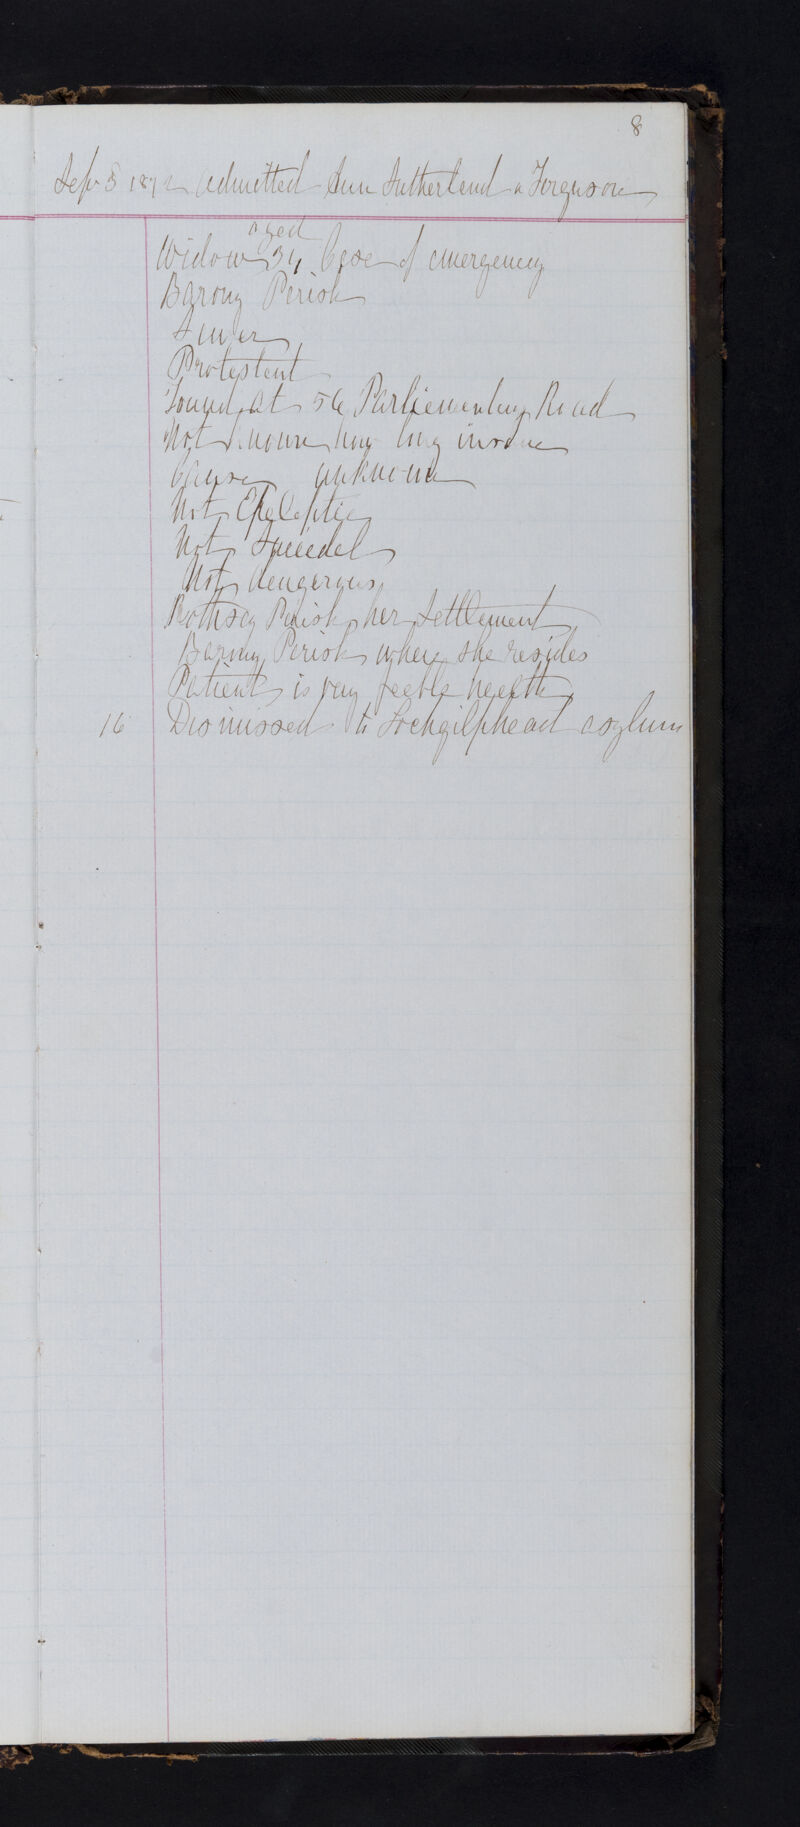 8
Sep 5 1872 Admitted Ann Sutherland or Ferguson
aged
Widow 34 Case of emergency
Barony Parish
Sewer
Protestant
Found at 56 Parliamentary Road
Not known how long insane
Cause unknown
Not Epeleptic
Not Sueedel
Not dangerous
Rothsey Parish her Settlement
Barony Parish where she resides
Patient is very feeble health
16 Dismissed to Lochgilphead asylum